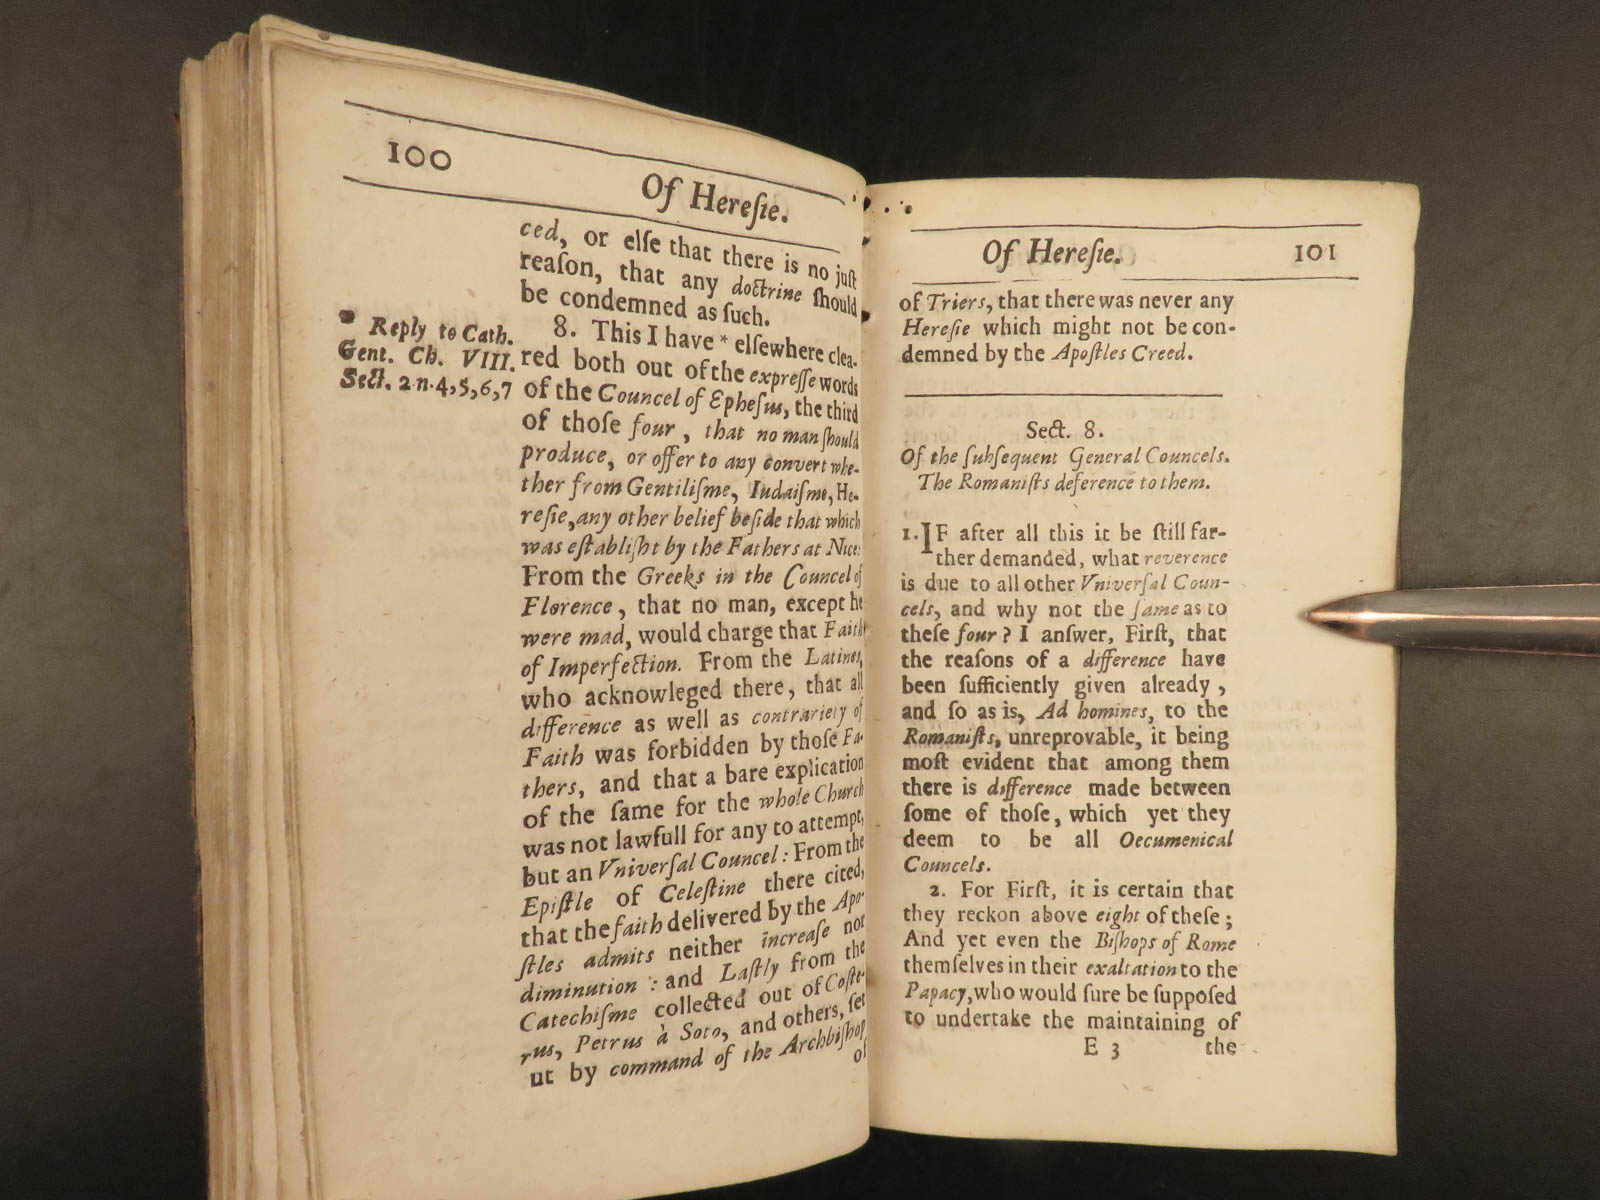 100
Of Hereſie.
ced, or elſe that there is no juſt
reaſon, that any doctrine ſhould
be condemned as ſuch.
* Reply to Cath.
Gent. Ch. VIII.
Sect. 2 n. 4, 5, 6, 7
8. This I have * elſewhere clea-
red both out of the expreſſe words
of the Councel of Epheſus, the third
of thoſe four, that no man ſhould
produce, or offer to any convert whe-
ther from Gentiliſme, Iudaiſme, He-
reſie, any other belief beſide that which
was eſtabliſht by the Fathers at Nice:
From the Greeks in the Councel of
Florence, that no man, except he
were mad, would charge that Faith
of Imperfection. From the Latines,
who acknowleged there, that all
difference as well as contrariety of
Faith was forbidden by thoſe Fa-
thers, and that a bare explication
of the ſame for the whole Church
was not lawfull for any to attempt,
but an Vniverſal Councel: From the
Epiſtle of Celeſtine there cited,
that the faith delivered by the Apo-
ſtles admits neither increaſe not
diminution: and Laſtly from the
Catechiſme collected out of Coſte-
rus, Petrus à Soto, and others, ſet
ut by command of the Archbiſhop
of
Of Hereſie.
101
of Triers, that there was never any
Hereſie which might not be con-
demned by the Apoſtles Creed.
Sect. 8.
Of the ſubſequent General Councels.
The Romaniſts deference to them.
1. IF after all this it be ſtill far-
ther demanded, what reverence
is due to all other Vniverſal Coun-
cels, and why not the ſame as to
theſe four? I anſwer, Firſt, that
the reaſons of a difference have
been ſufficiently given already,
and ſo as is, Ad homines, to the
Romaniſts, unreprovable, it being
moſt evident that among them
there is difference made between
ſome of thoſe, which yet they
deem to be all Oecumenical
Councels.
2. For Firſt, it is certain that
they reckon above eight of theſe;
And yet even the Biſhops of Rome
themſelves in their exaltation to the
Papacy, who would ſure be ſuppoſed
to undertake the maintaining of
E 3
the